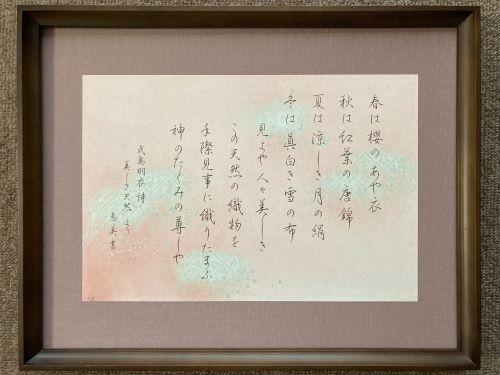 春は櫻のあや衣
秋は紅葉の唐錦
夏は涼しき月の絹
冬は眞白き雪の布
見よや人々美しき
この天然の織物を
手際見事に織りたまふ
神のたくみの尊しや
武島羽衣詩
美しき天然より
恵美書